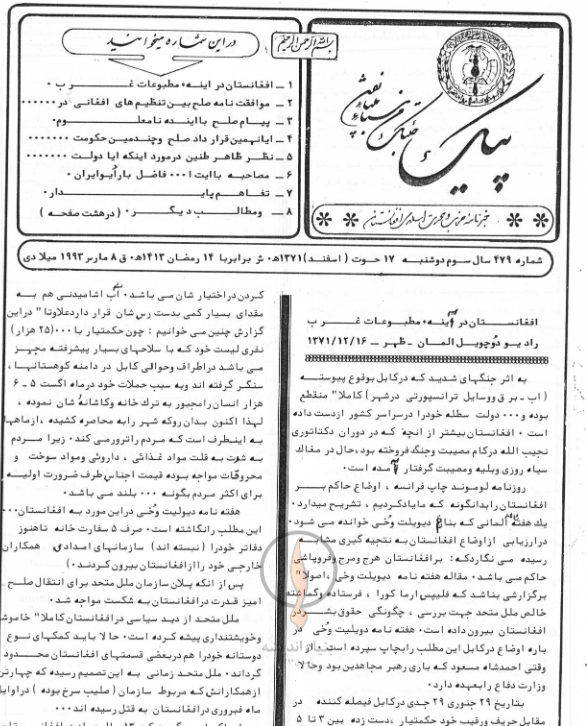 بسم الله الرحمن الرحیم
در این شماره میخوانید
۱ ــ افغانستان در آینه مطبوعات غرب ۰
۲ ــ موافقت نامه صلح بین تنظیم های افغانی در ۰۰۰۰۰۰
۳ ــ پیام صلح با آینده نامعلوم ۰
۴ ــ ایا نهمین قرار داد صلح و چندمین حکومت ۰۰۰۰۰۰۰
۵ ــ نظر ظاهر طنین در مورد اینکه ایا دولت ۰۰۰۰۰۰۰
۶ ــ مصاحبه با آیت ا۰۰۰ فاضل با رادیو ایران ۰
۷ ــ تفاهم پایدار ۰
۸ ــ و مطالب دیگر ۰ ( در هشت صفحه )
پیک
خبرنامه حزب وحدت اسلامی افغانستان
شماره ۴۷۹ سال سوم دوشنبه ۱۷ حوت ( اسفند ) ۱۳۷۱ه۰ ش برابر با ۱۴ رمضان ۱۴۱۳ه۰ ق ۸ مارس ۱۹۹۳ میلادی
افغانستان در آینه مطبوعات غرب
رادیو دُوچویل المان ــ ظهر ــ ۱۳۷۱/۱۲/۱۶
به اثر جنگهای شدید که در کابل بوقوع پیوسته
( اب ـ برق و وسایل ترانسپورتی در شهر ) کاملا" منقطع
بوده و ۰۰۰ دولت سطله خود را در سراسر کشور از دست داده
است ۰ افغانستان بیشتر از انچه که در دوران دکتاتوری
نجیب الله در کام مصیبت و جنگ فروخته بود، حال در مغاک
سیاه روزی و بلیه و مصیبت گرفتار آمده است ۰
روزنامه لوموند چاپ فرانسه ، اوضاع حاکم بر
افغانستان را بدانگونه که ما یاد کردیم ، تشریح میدارد ۰
یک هفته نامه آلمانی که بنام دیویلت وُخی خوانده می شود ۰
در ارزیابی از اوضاع افغانستان به نتیجه گیری مشابه
رسیده می نگارد که : بر افغانستان هرج و مرج و فروپاشی
حاکم می باشد ۰ مقاله هفته نامه دیویلت وخی ، اصولا"
بر گزارشی بناشد که فلیپس ارما کورا ، فرستاده و گماشته
خاص ملل متحد جهت بررسی ، چگونگی حقوق بشر در
افغانستان بیرون داده است ۰ هفته نامه دویلیت وُخی در
باره اوضاع در کابل این مطلب را بچاپ سپرده است : از
وقتی احمدشاه مسعود که باری رهبر مجاهدین بود و حالا
وزارت دفاع را بعهده دارد ۰
بتاریخ ۲۹ جنوری ۲۹ جدی در کابل فیصله کننده در
مقابل حریف و رقیب خود حکمتیار ،دست زده بین ۳ تا ۵
کردن در اختیار شان می باشد ۰ آب اشامیدنی هم به
مقدای بسیار کمی بدست رس شان قرار دارد علاوتا" در این
گزارش چنین می خوانیم : چون حکمتیار با ۰۰۰ (۲۵ هزار)
نفری لیست خود که با سلاحهای بسیار پیشرفته مجهز
می باشد در اطراف و حوالی کابل در دامنه کوهستانها ،
سنگر گرفته اند و به سبب حملات خود در ماه اگست ۵ ـ ۶
هزار انسان را مجبور به ترک خانه و کاشانهٔ شان نموده ،
لهذا اکنون بدان روکه شهر را به محاصره کشیده ، از ماهها
به اینطرف است که مردم را ترور می کند ۰ زیرا مردم
به شدت به قلت مواد غذائی ، داروئی و مواد سوخت و
محروقات مواجه بوده قیمت اجناس طرف ضرورت اولیه
برای اکثر مردم بگونه ۰۰۰ بلند می باشد ۰
هفته نامه دیولیت وُخی در این مورد به افغانستان ۰۰۰
این مطلب را نگاشته است ۰ صرف ۵ سفارت خانه تا هنوز
دفاتر خود را ( نبسته اند ) سازمانهای امدادی همکاران
خارجی خود را از افغانستان بیرون کردند ۰)
پس از انکه پلان سازمان ملل متحد برای انتقال صلح
امیز قدرت در افغانستان به شکست مواجه شد ۰
ملل متحد از دید سیاسی در افغانستان کاملا" خاموش
و خویشتنداری پیشه کرده است ۰ حالا باید کمکهای نوع
دوستانه خود را هم در بعضی قسمتهای افغانستان محدود
گرداند ۰ ملل متحد زمانی به این تصمیم رسید که چهارتن
از همکارانش که مربوط سازمان ( صلیب سرخ بوده ) در اوایل
ماه فبروری در افغانستان به قتل رسیده اند ۰۰۰